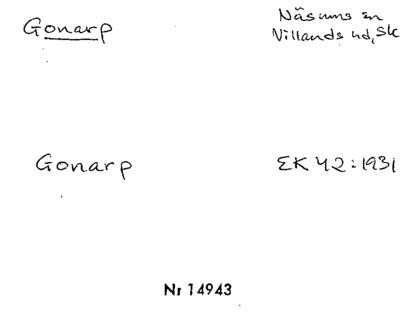 Gonarp
Näsums sn
Villands hd, Sk
Gonarp
EK 42:1931
Nr 14943